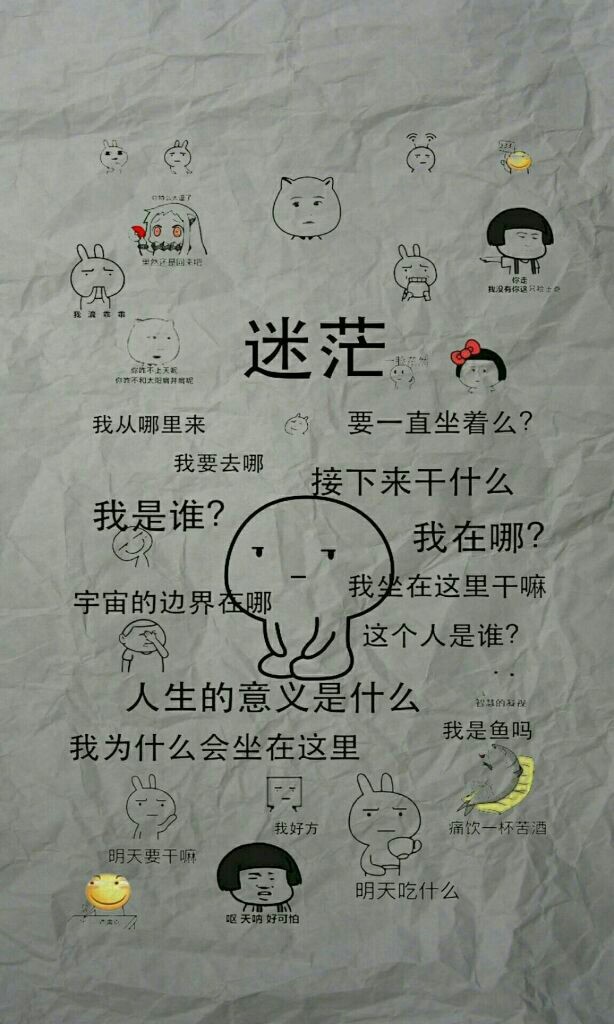 果然还是回来吧
你走
我没有你这
我 滚 乖 乖
迷茫
一脸茫然
你咋不上天呢
你咋不和太阳肩并肩呢
我从哪里来
要一直坐着么?
我要去哪
接下来干什么
我是谁?
我在哪?
我坐在这里干嘛
宇宙的边界在哪
这个人是谁?
人生的意义是什么
智慧的凝视
我是鱼吗
我为什么会坐在这里
我好方
痛饮一杯苦酒
明天要干嘛
明天吃什么
呕 天呐 好可怕